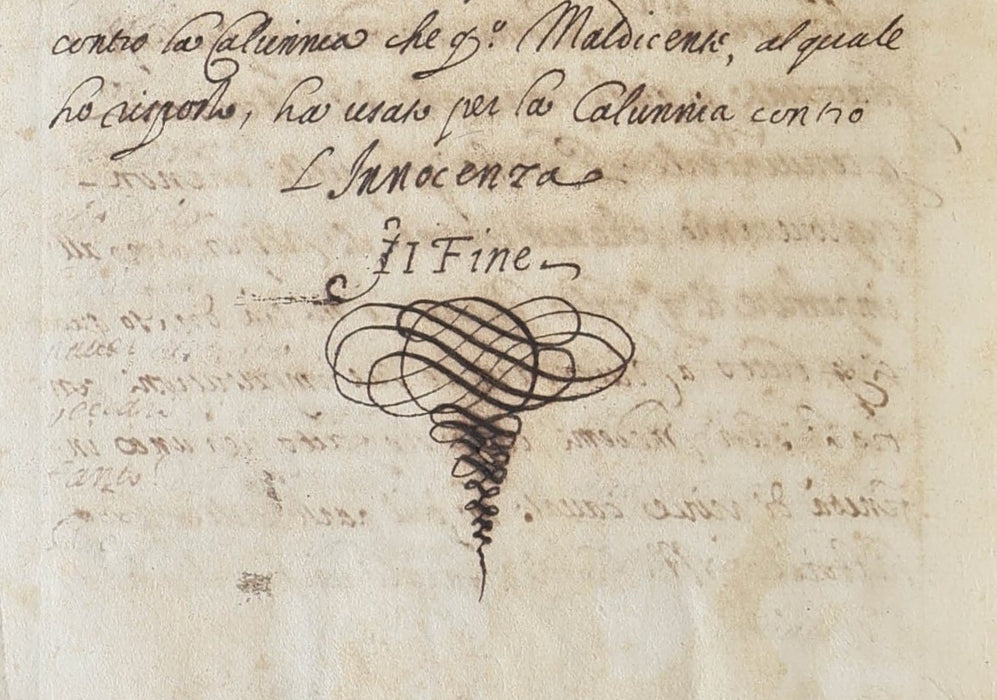 contro la Calunnia che qº. Maldicente, al quale
ho risposto, ha usato per la Calunnia contro
L Innocenza
Il Fine